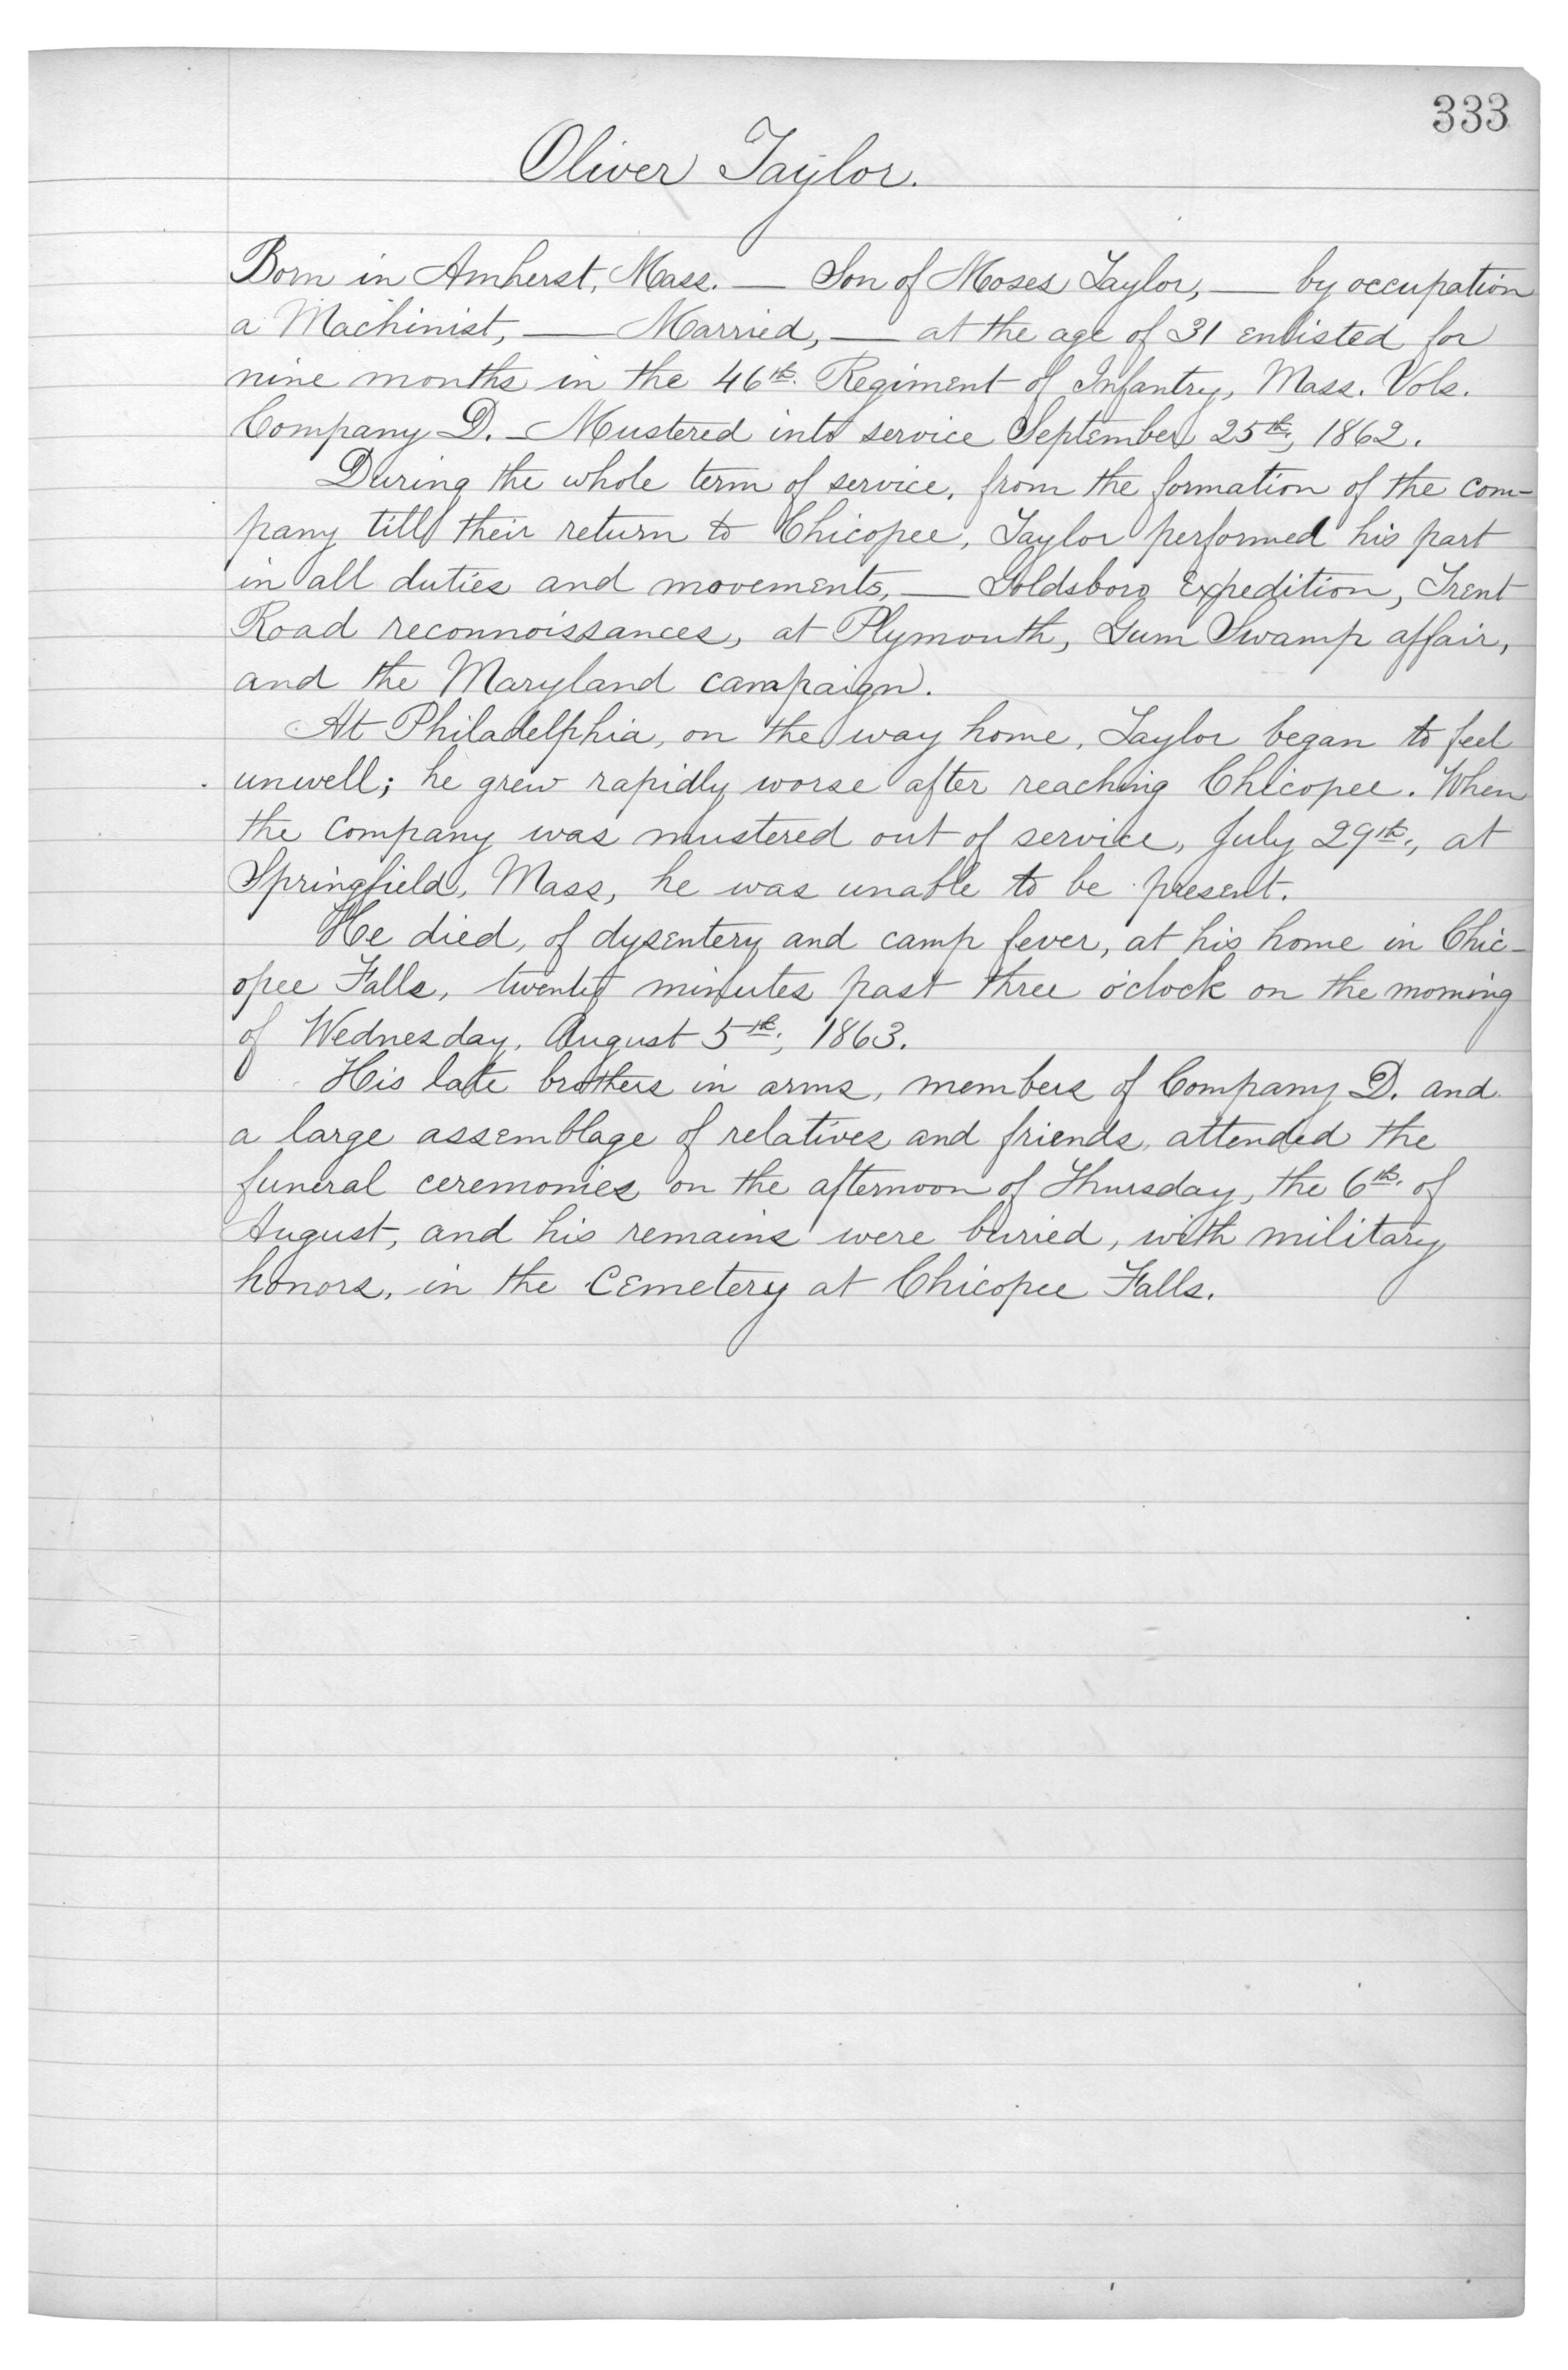 333
Oliver Taylor.
Born in Amherst, Mass. — Son of Moses Taylor, — by occupation
a Machinist, — Married, — at the age of 31 enlisted for
nine months in the 46th. Regiment of Infantry, Mass. Vols.
Company D. — Mustered into service September 25th, 1862.
During the whole term of service, from the formation of the com-
pany till their return to Chicopee, Taylor performed his part
in all duties and movements, — Goldsboro Expedition, Trent
Road reconnoissances, at Plymouth, Gum Swamp affair,
and the Maryland campaign.
At Philadelphia, on the way home, Taylor began to feel
unwell; he grew rapidly worse after reaching Chicopee. When
the company was mustered out of service, July 29th., at
Springfield, Mass, he was unable to be present.
He died, of dysentery and camp fever, at his home in Chic-
opee Falls, twenty minutes past three o'clock on the morning
of Wednesday, August 5th., 1863.
His late brothers in arms, members of Company D. and
a large assemblage of relatives and friends, attended the
funeral ceremonies on the afternoon of Thursday, the 6th. of
August, and his remains were buried, with military
honors, in the Cemetery at Chicopee Falls.